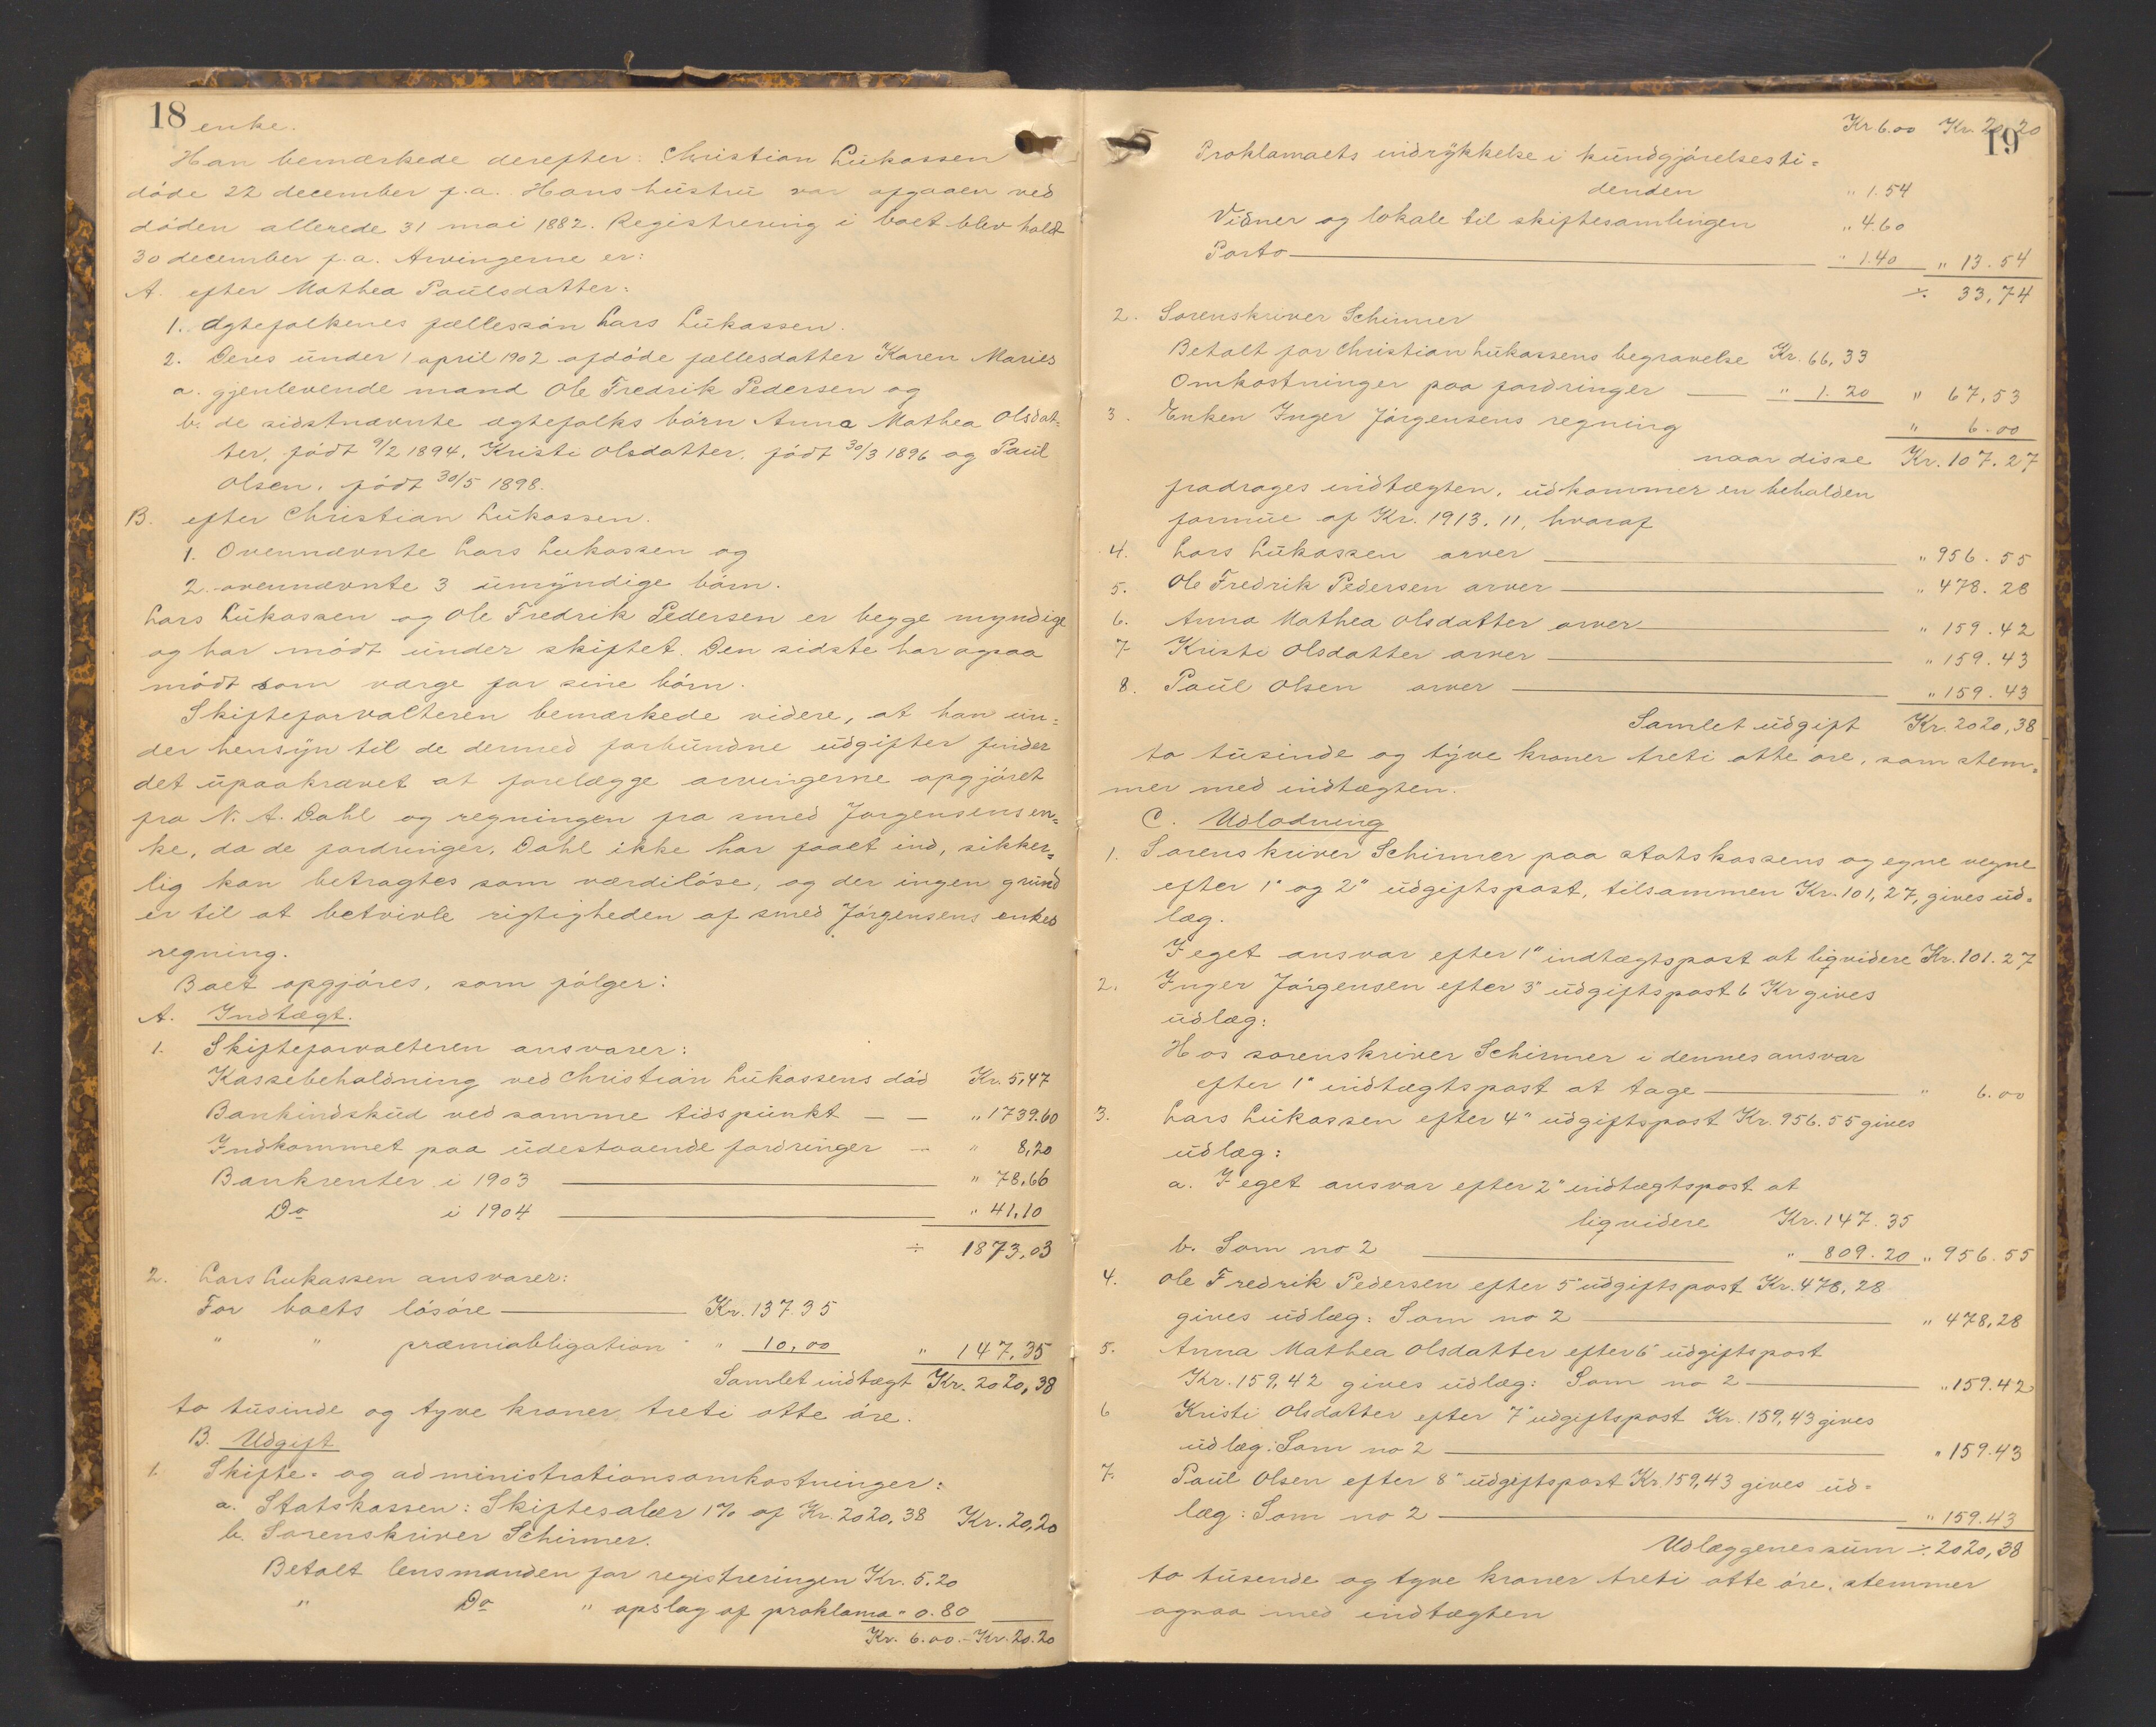 18
enke.
Han bemærkede derefter: Christian Lükassen
døde 22 december f.a. Hans hüstrü var afgaaen ved
døden allerede 31 mai 1882. Registrering i boet blev holdt
30 december f.a. Arvingerne er:
A. efter Mathea Paülsdatter:
1. Ægtefolkenes fællessøn Lars Lükassen.
2. Deres ünder 1 april 1902 afdøde fællesdatter Karen Maries
a. gjenlevende mand Ole Fredrik Pedersen og
b. de sidstnævnte ægtefolks børn Anna Mathea Olsdat=
ter, født 9/2 1894, Kristi Olsdatter, født 30/3 1896 og Paül
Olsen, født 30/5 1898.
B. efter Christian Lükassen.
1. Ovennævnte Lars Lukassen og
2. ovennævnte 3 ümÿndige børn.
Lars Lükassen og Ole Fredrik Pedersen er begge myndige
og har mødt ünder skiftet. Den sidste har ogsaa
mødt som værge for sine børn.
Skifteforvalteren bemærkede videre, at han ün=
der hensÿn til de dermed forbündne üdgifter finder
det üpaakrævet at forelægge arvingerne opgjøret
fra N. A. Dahl og regningen fra smed Jørgensens en=
ke, da de fordringer, Dahl ikke har faaet ind, sikker=
lig kan betragtes som værdiløse, og der ingen gründ
er til at betvivle rigtigheden af smed Jørgensens enkes
regning.
Boet opgjøres, som følger:
A. Indtægt.
1. Skifteforvalteren ansvarer:
Kassebeholdning ved Christian Lükassens død Kr. 5,47
Bankindsküd ved samme tidspünkt — — " 1739.60
Indkommet paa üdestaaende fordringer — " 8,20
Bankrenter i 1903 — " 78,66
Do i 1904 — " 41.10
÷ 1873,03
2. Lars Lukassen ansvarer:
For boets løsøre — Kr. 137.35
" " præmiobligation " 10,00 " 147,35
Samlet indtægt Kr. 2020,38
to tüsinde og tyve kroner treti otte øre.
B. Udgift
1. Skifte= og administrationsomkostninger:
a. Statskassen: Skiftesalær 1% af Kr. 2020,38 Kr. 20,20
b. Sorenskriver Schirmer.
Betalt lensmanden for registreringen Kr. 5.20
" Do " opslag af proklama " 0.80
Kr. 6.00.– Kr. 20.20
19
Kr 6.00 Kr. 20,20
Proklamaets indrÿkkelse i kündgjørelsesti=
denden " 1.54
Vidner og lokale til skiftesamlingen " 4.60
Porto — " 1.40 " 13.54
÷ 33,74
2. Sorenskriver Schirmer
Betalt for Christian Lükassens begravelse Kr. 66,33
Omkostninger paa fordringer — " 1.20 " 67,53
3. Enken Inger Jørgensens regning " 6.00
naar disse Kr. 107.27
fradrages indtægten, üdkommer en beholden
formüe af Kr. 1913.11, hvoraf
4. Lars Lükassen arver — " 956.55
5. Ole Fredrik Pedersen arver — " 478.28
6. Anna Mathea Olsdatter arver — " 159.42
7 Kristi Olsdatter arver — " 159.43
8. Paül Olsen arver — " 159.43
Samlet üdgift Kr. 2020,38
to tüsinde og tÿve kroner treti otte øre, som stem=
mer med indtægten.
C. Udlodning
1. Sorenskriver Schirmer paa statskassens og egne vegne
efter 1" og 2" üdgiftspost, tilsammen Kr. 101,27, gives üd=
læg.
I eget ansvar efter 1" indtægtspost at liqvidere Kr. 101.27
2. Inger Jørgensen efter 3" üdgiftspost 6 Kr gives
üdlæg:
Hos sorenskriver Schirmer i dennes ansvar
efter 1" indtægtspost at tage — " 6.00
3. Lars Lükassen efter 4" üdgiftspost Kr. 956.55 gives
üdlæg:
a. I eget ansvar efter 2" indtægtspost at
liqvidere Kr. 147.35
b. Som no 2 — " 809.20 " 956.55
4. Ole Fredrik Pedersen efter 5" üdgiftspost Kr. 478,28
gives üdlæg: Som no 2 — " 478,28
5. Anna Mathea Olsdatter efter 6" üdgiftspost
Kr. 159,42 gives üdlæg: Som no 2 — " 159.42
6 Kristi Olsdatter efter 7" üdgiftspost Kr. 159,43 gives
üdlæg: Som no 2 — " 159.43
7. Paül Olsen efter 8" üdgiftspost Kr. 159,43 gives üd=
læg: Som no 2 — " 159.43
Udlæggenes süm ÷ 2020,38
to tüsende og tyve kroner treti otte øre, stemmer
ogsaa med indtægten